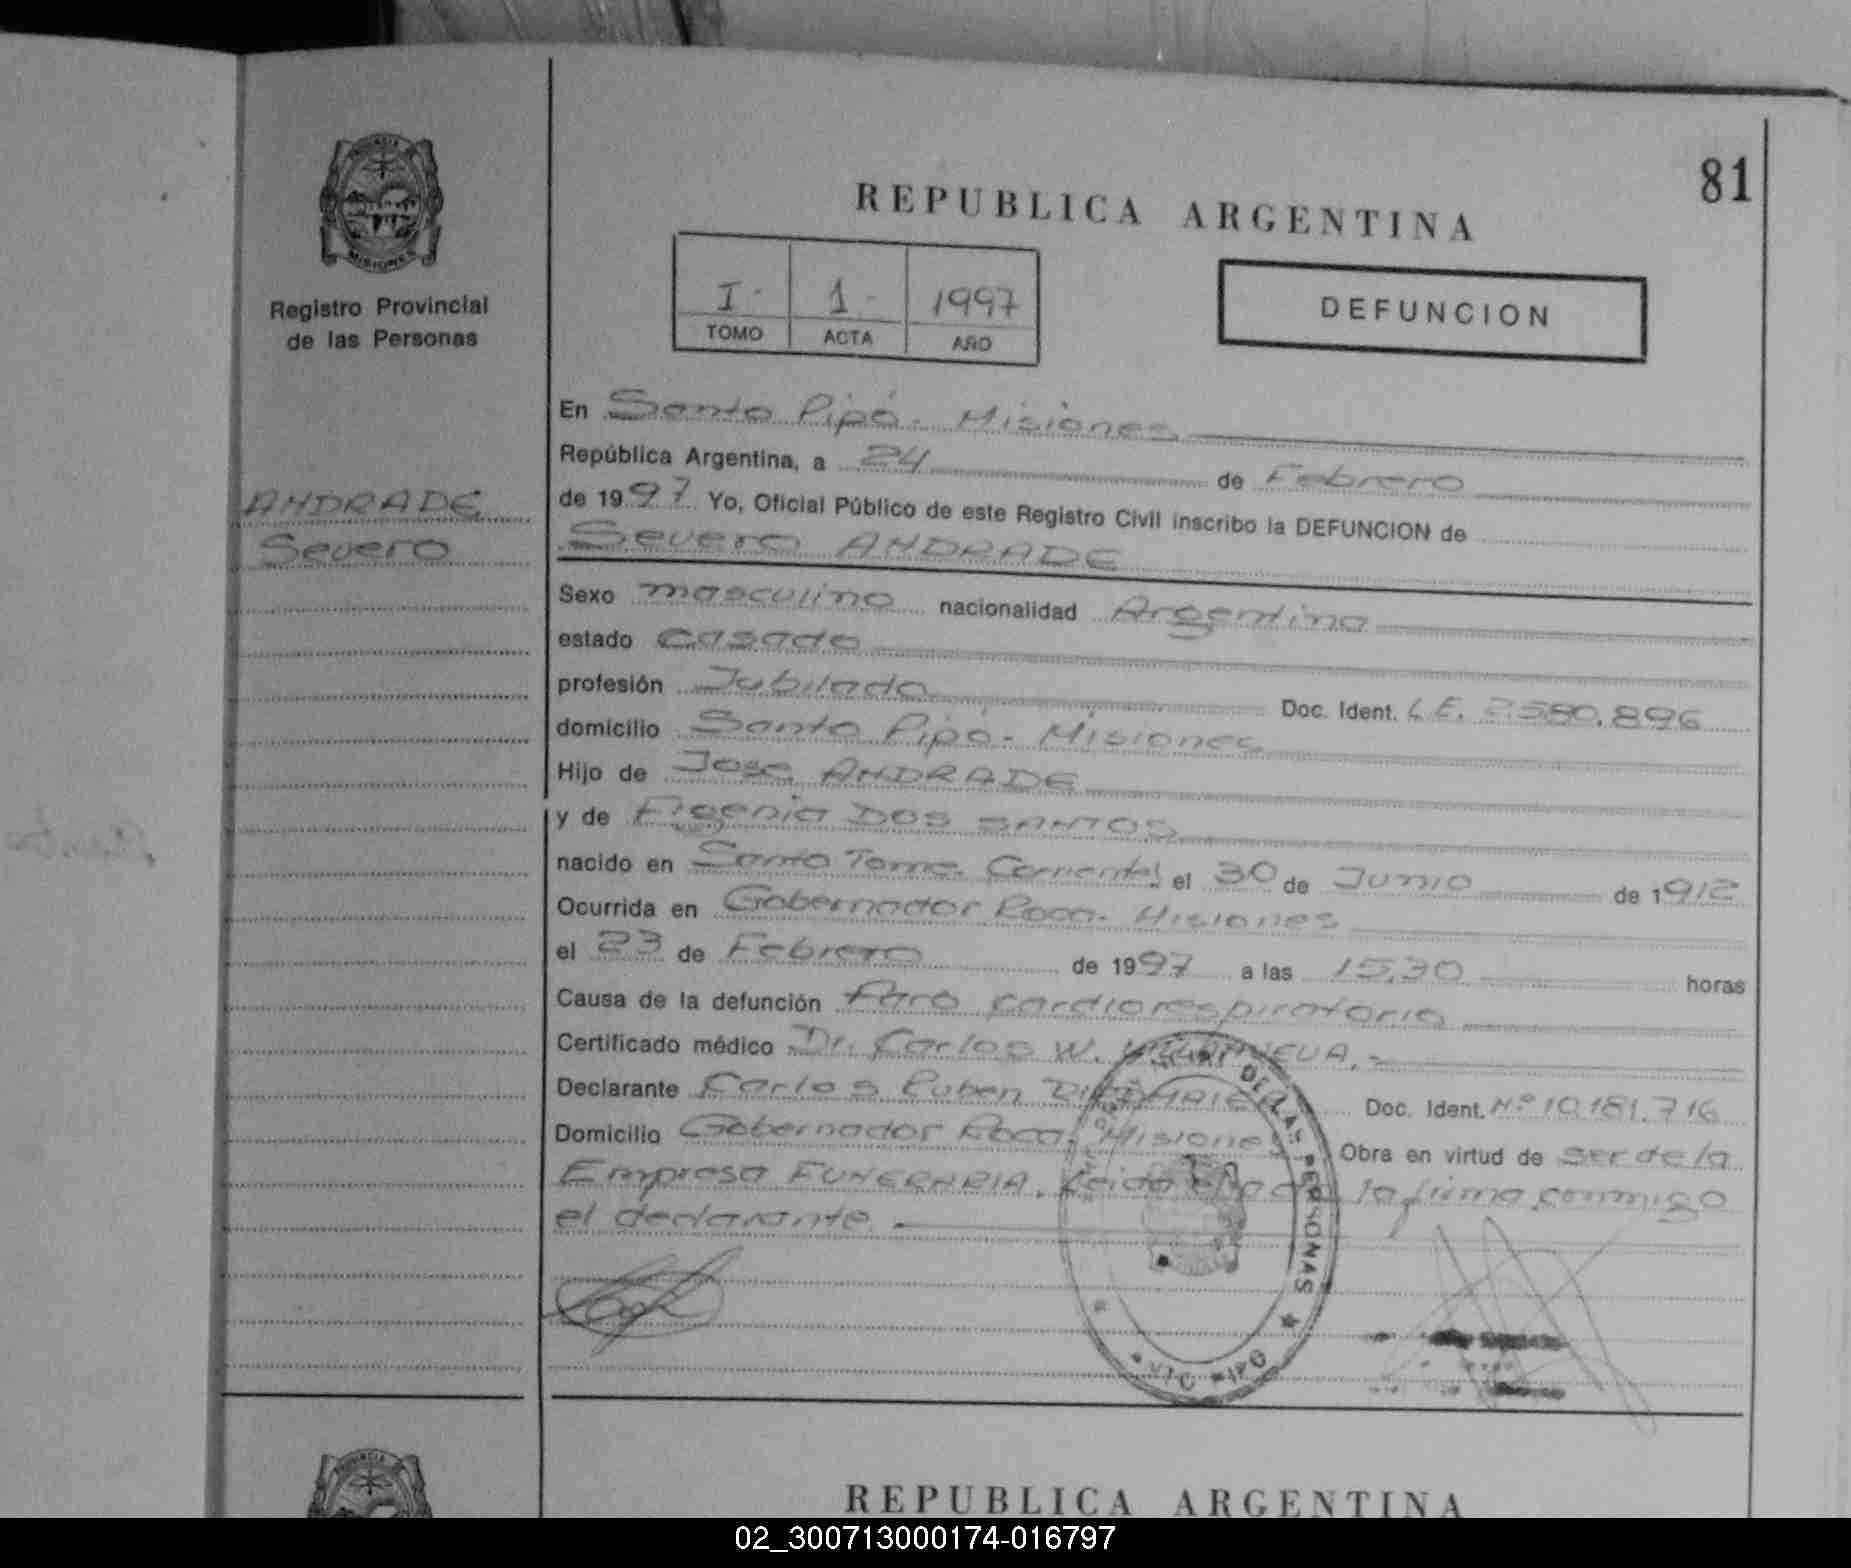 81
REPUBLICA ARGENTINA
PROVINCIA DE
MISIONES
Registro Provincial
de las Personas
I - 1 - 1997
TOMO ACTA AÑO
DEFUNCION
En Santo Pipó - Misiones
República Argentina, a 24 de Febrero
de 1997 Yo, Oficial Público de este Registro Civil inscribo la DEFUNCION de
ANDRADE
Severo
Severo ANDRADE
Sexo masculino nacionalidad Argentina
estado casado
profesión Jubilado Doc. Ident. L.E. 2.580.896
domicilio Santo Pipó - Misiones
Hijo de Jose ANDRADE
y de DOS SANTOS
nacido en Santo Tome. Corrientes el 30 de Junio de 1912
Ocurrida en Gobernador Roca - Misiones
el 23 de Febrero de 1997 a las 15,30 horas
Causa de la defunción Paro cardiorespiratorio
Certificado médico Dr. Carlos W. VILLANUEVA.-
Declarante Carlos Ruben Doc. Ident. Nº 10.181.716
Domicilio Gobernador Roca - Misiones Obra en virtud de ser de la
Empresa FUNERARIA. Leida el acta la firma conmigo
el declarante.
DE LAS PERSONAS
REPUBLICA ARGENTINA
02_300713000174-016797